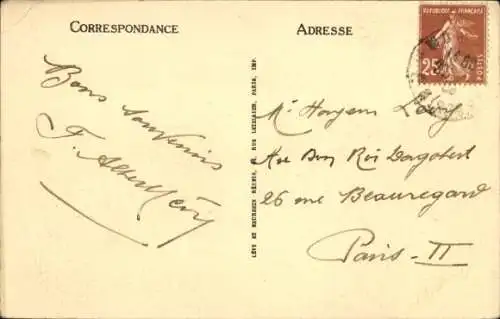 CORRESPONDANCE
ADRESSE
REPUBLIQUE FRANÇAISE
25
POSTES
Bons souvenirs
F. Albert Lévy
LÉVY ET NEURDEIN RÉUNIS, 44, RUE LETELLIER, PARIS, IMP.
Mr Lévy
Au Bon Roi Dagobert
26 rue Beauregard
Paris - II